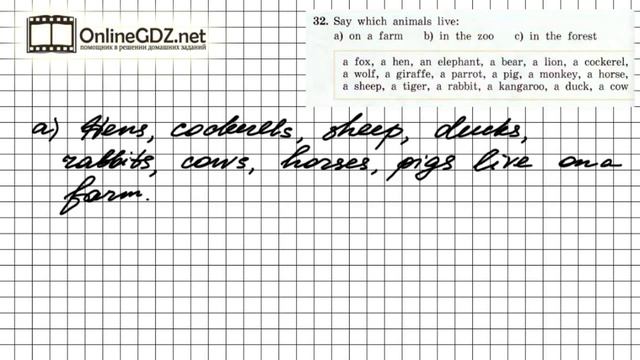 OnlineGDZ.net
помощник в решении домашних заданий
32. Say which animals live:
a) on a farm b) in the zoo c) in the forest
a fox, a hen, an elephant, a bear, a lion, a cockerel,
a wolf, a giraffe, a parrot, a pig, a monkey, a horse,
a sheep, a tiger, a rabbit, a kangaroo, a duck, a cow
a) Hens, cockerells, sheep, ducks,
rabbits, cows, horses, pigs live on a
farm.